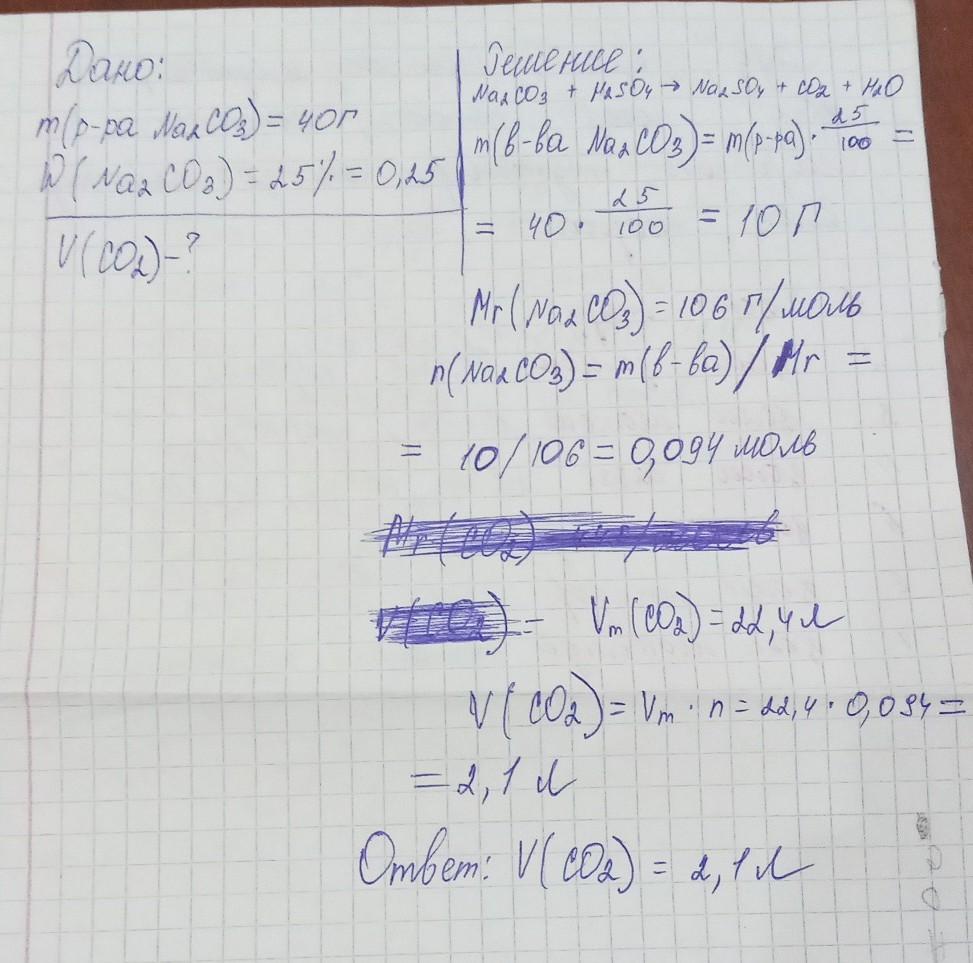 Дано:
m(р-ра Na₂CO₃) = 40г
W(Na₂CO₃) = 25% = 0,25
V(CO₂)-?
Решение:
Na₂CO₃ + H₂SO₄ → Na₂SO₄ + CO₂ + H₂O
m(в-ва Na₂CO₃) = m(р-ра) · 25/100 =
= 40 · 25/100 = 10 г
Mr(Na₂CO₃) = 106 г/моль
n(Na₂CO₃) = m(в-ва) / Mr =
= 10/106 = 0,094 моль
Mr(CO₂)
V(CO₂) = Vm(CO₂) = 22,4 л
V(CO₂) = Vm · n = 22,4 · 0,094 =
= 2,1 л
Ответ: V(CO₂) = 2,1 л